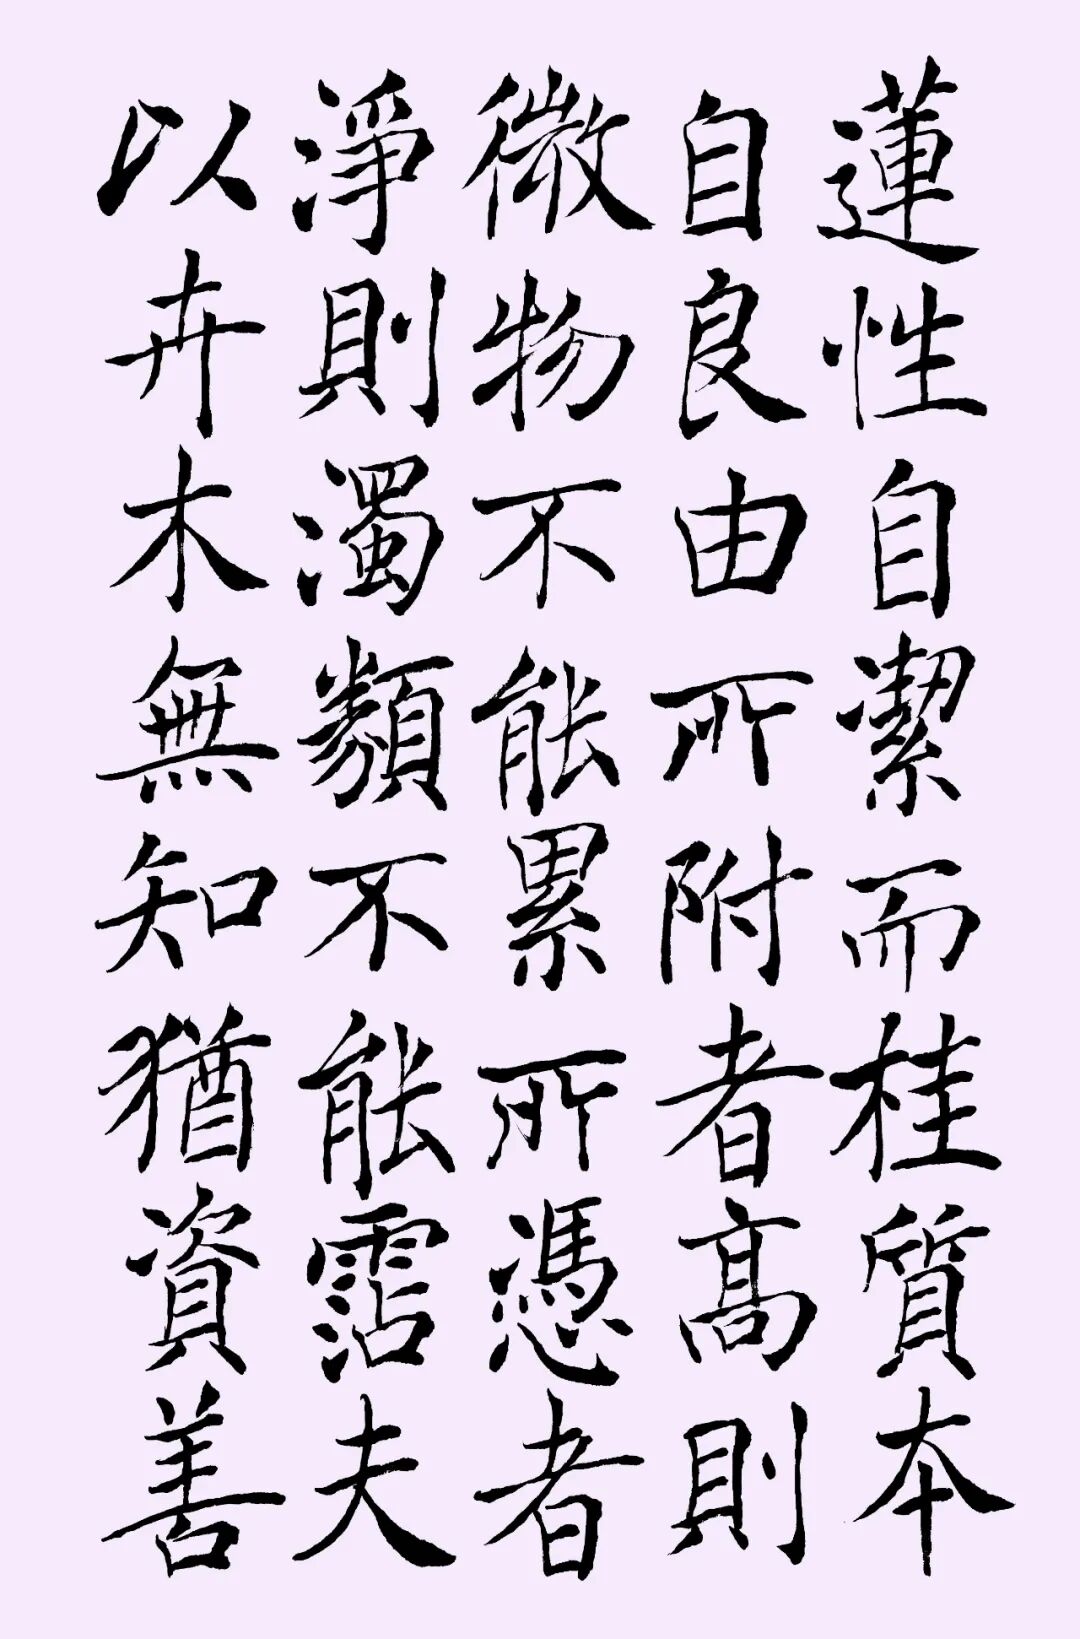 蓮性自潔而桂質本
自良由所附者高則
微物不能累所憑者
淨則濁類不能霑夫
以卉木無知猶資善